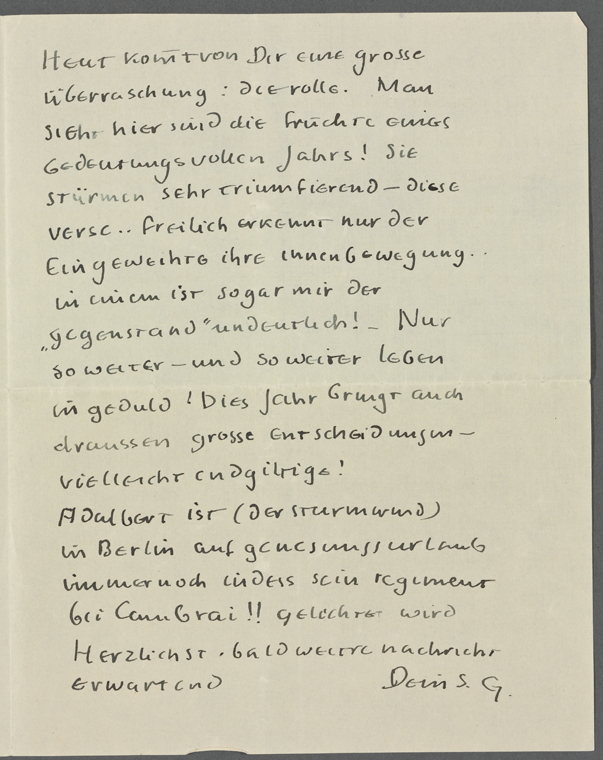 Heut kom̄t von Dir eine grosse
Überraschung : die rolle. Man
sieht hier sind die früchte eines
bedeutungsvollen Jahrs! Sie
stürmen sehr triumfierend – diese
verse.. freilich erkennt nur der
Eingeweihte ihre innenbewegung..
in einem ist sogar mir der
„gegenstand" undeutlich! – Nur
so weiter – und so weiter leben
in geduld! Dies Jahr bringt auch
draussen grosse entscheidungen –
vielleicht endgiltige!
Adalbert ist (der sturmwind)
in Berlin auf genesungsurlaub
immer noch indess sein regiment
bei Cambrai!! gelichtet wird
Herzlichst. bald weitre nachricht
erwartend Dein S. G.